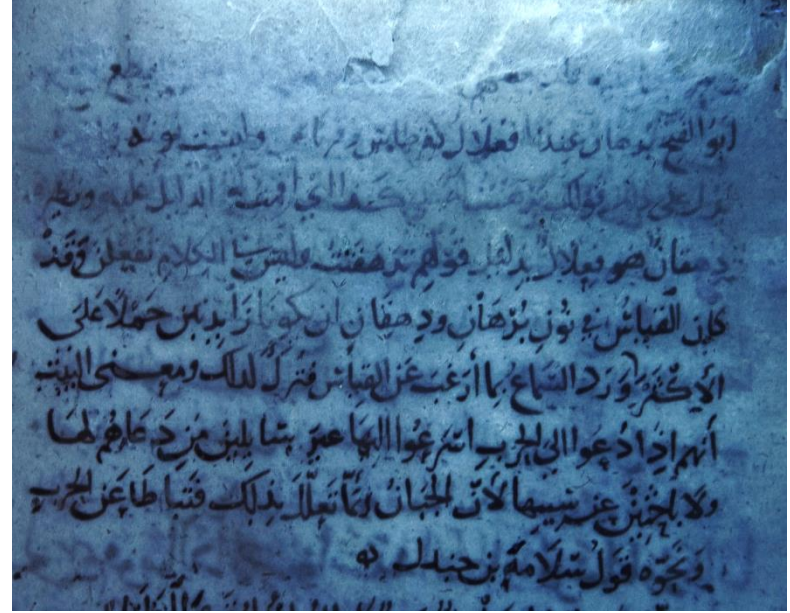 أبو الفتح برهان عندنا فعلال كقرطاس وقرناس وليست نونه
تدل على ذلك قولك برهنت له على كذا اي اقمت الدليل عليه ونظيره
دهقان هو فعلال بدليل قولهم تدهقنت وليس في الكلام تفعلن وقد
كان القياس في نون برهان ودهقان ان يكونا زايدتين حملا على
الأكثر وورد السماع بما أرغب عن القياس فترك لذلك ومعنى البيت
أنهم إذا دعوا الى الحرب اسرعوا اليها غير سايلين من دعاهم لها
ولا باحثين عن سببها لأن الجبان ربما تعلل بذلك فتباطا عن الحرب
ونحوه قول سلامة بن جندل